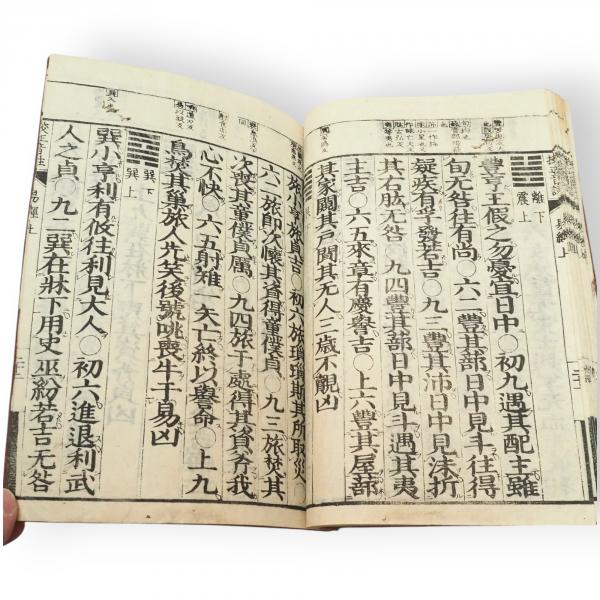 離下
震上
豐亨王假之勿憂宜日中○初九遇其配主雖
旬无咎往有尚○六二豐其蔀日中見斗往得
疑疾有孚發若吉○九三豐其沛日中見沬折
其右肱无咎○九四豐其蔀日中見斗遇其夷
主吉○六五來章有慶譽吉○上六豐其屋蔀
其家闚其戶闃其无人三歲不覿凶
旅小亨旅貞吉○初六旅瑣瑣斯其所取災
六二旅即次懷其資得童僕貞○九三旅焚其
次喪其童僕貞厲○九四旅于處得其資斧我
心不快○六五射雉一矢亡終以譽命○上九
鳥焚其巢旅人先笑後號咷喪牛于易凶
巽下
巽上
巽小亨利有攸往利見大人○初六進退利武
人之貞○九二巽在牀下用史巫紛若吉无咎
易經上